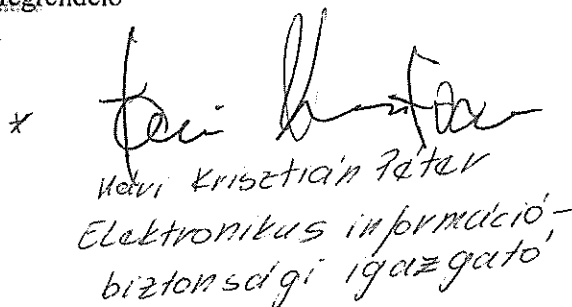 megrendelő
*
Kári Krisztián Péter
Elektronikus információ-
biztonsági igazgató